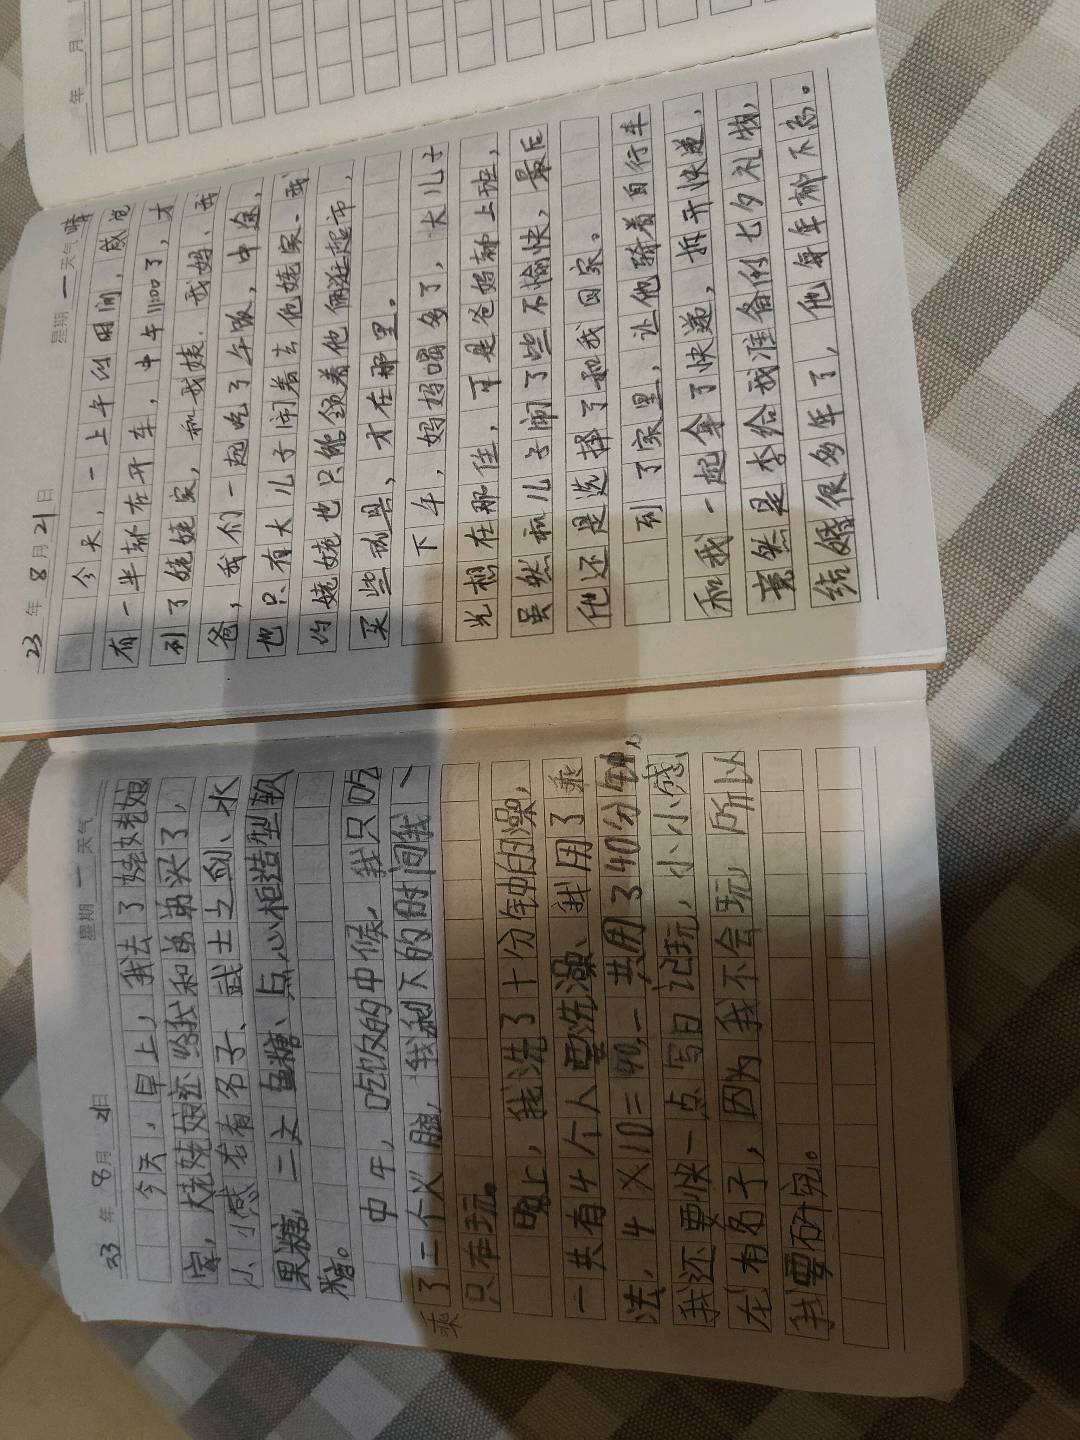 年 月
23 年 8 月 21 日 星期 一 天气 晴
今天,一上午的时间,感觉
有一半都在开车,中午11:00了,才
到了姥姥家,和我姨,我妈、我
爸,我们一起吃了午饭,中途,
也只有大儿子闹着去他姥家,我
的姥姥也只能领着他俩逛超市,
买些玩具、才在那里。
下午,妈妈喝多了,大儿子
光想在那住,可是爸妈都上班,
虽然和儿子闹了些不愉快,最后
他还是选择了和我回家。
到了家里,让他骑着自行车
和我一起拿了快递,拆开快递,
竟然是李给我准备的七夕礼物,
结婚很多年了,他每年都不忘。
23 年 8 月 21 日 星期 一 天气
今天,早上,我去了姥姥姥姥
家,大姥姥还给我和弟弟买了,
小小感右有名子、武士之剑、水
果糖,二文鱼糖、点心相造型软
糖。
中午,吃饭的中候,我只吃
了二个义脑,我剩下的时间我一
只在玩。
晚上,我洗了十分钟的澡,
一共有4个人要洗澡、我用了乘
乘
法,4×10=40,一共用了40分钟,
我还要快一点写日记玩,小小感
右有名子,因为我不会玩,所以
我要研究。